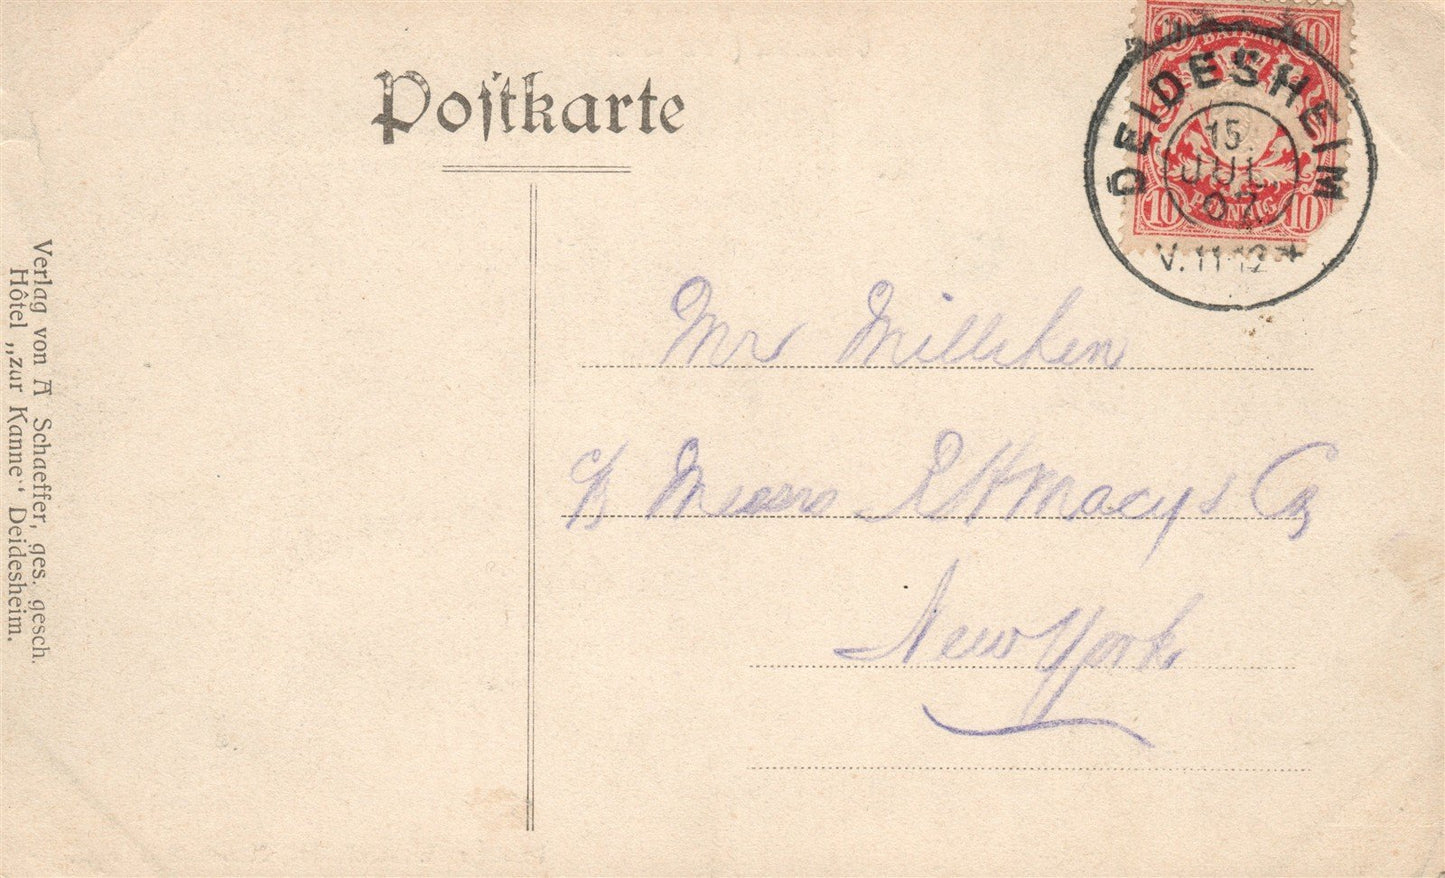 Postkarte
10 BAYERN 10
DEIDESHEIM
15.
JUL
07
10 PFENNIG 10
V.11-12
Mr Milliken
c/o Messrs R H Macy & Co
New York
Verlag von A Schaeffer, ges. gesch.
Hôtel „zur Kanne“ Deidesheim.